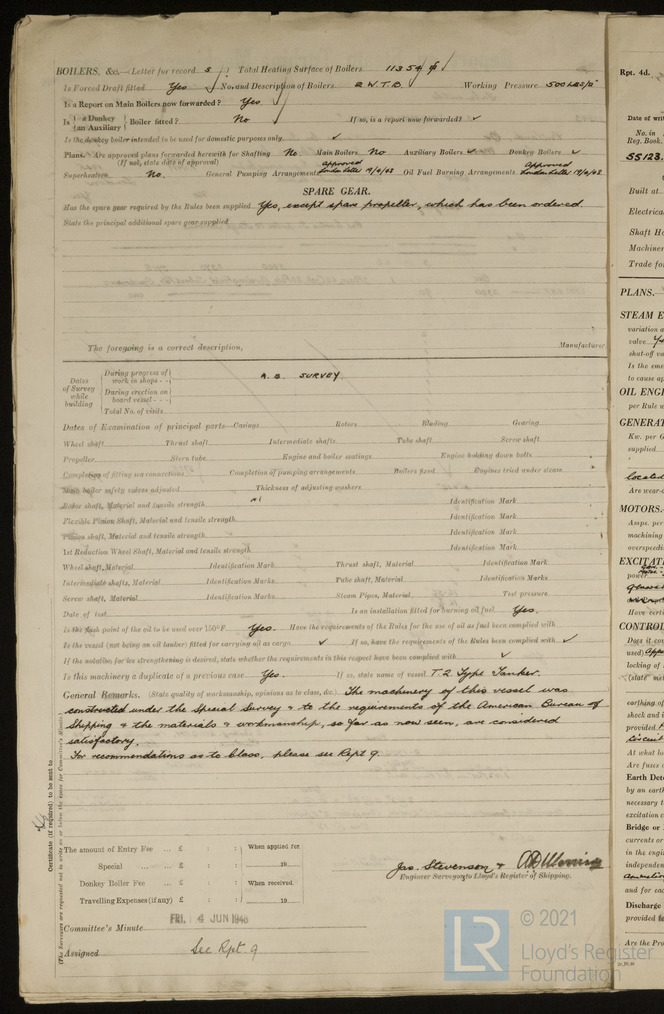 BOILERS, &c.—(Letter for record S) Total Heating Surface of Boilers 11354
Is Forced Draft fitted Yes No. and Description of Boilers 2 W.T.B. Working Pressure 500 LBS/□"
Is a Report on Main Boilers now forwarded? Yes
Is {a Donkey / an Auxiliary} Boiler fitted? No If so, is a report now forwarded? ✓
Is the donkey boiler intended to be used for domestic purposes only ✓
Plans. Are approved plans forwarded herewith for Shafting No Main Boilers No Auxiliary Boilers ✓ Donkey Boilers ✓
(If not, state date of approval)
Superheaters No. General Pumping Arrangements Approved London Letter Oil Fuel Burning Arrangements Approved London Letter
SPARE GEAR.
Has the spare gear required by the Rules been supplied Yes, except spare propeller, which has been ordered
State the principal additional spare gear supplied
The foregoing is a correct description, Manufacturer
Dates of Survey while building
During progress of work in shops - - A.B. SURVEY
During erection on board vessel - - -
Total No. of visits
Dates of Examination of principal parts—Casings Rotors Blading Gearing
Wheel shaft Thrust shaft Intermediate shafts Tube shaft Screw shaft
Propeller Stern tube Engine and boiler seatings Engine holding down bolts
Completion of fitting sea connections Completion of pumping arrangements Boilers fixed Engines tried under steam
Main boiler safety valves adjusted Thickness of adjusting washers
Rotor shaft, Material and tensile strength Identification Mark
Flexible Pinion Shaft, Material and tensile strength Identification Mark
Pinion shaft, Material and tensile strength Identification Mark
1st Reduction Wheel Shaft, Material and tensile strength Identification Mark
Wheel shaft, Material Identification Mark Thrust shaft, Material Identification Mark
Intermediate shafts, Material Identification Marks Tube shaft, Material Identification Marks
Screw shaft, Material Identification Mark Steam Pipes, Material Test pressure
Date of test Is an installation fitted for burning oil fuel Yes.
Is the flash point of the oil to be used over 150°F. Yes. Have the requirements of the Rules for the use of oil as fuel been complied with
Is the vessel (not being an oil tanker) fitted for carrying oil as cargo ✓ If so, have the requirements of the Rules been complied with ✓
If the notation for ice strengthening is desired, state whether the requirements in this respect have been complied with ✓
Is this machinery a duplicate of a previous case Yes. If so, state name of vessel T.2 Type Tanker.
General Remarks. (State quality of workmanship, opinions as to class, &c.) The machinery of this vessel was
constructed under the Special Survey & to the requirements of the American Bureau of
Shipping & the materials & workmanship, so far as now seen, are considered
satisfactory.
For recommendations as to Class, please see Rpt 9.
Certificate (if required) to be sent to
(The Surveyors are requested not to write on or below the space for Committee's Minute.)
The amount of Entry Fee ... £ : : When applied for,
Special ... ... £ : : 19
Donkey Boiler Fee ... £ : : When received,
Travelling Expenses (if any) £ : : 19
Jas. Stevenson &
Engineer Surveyors to Lloyd's Register of Shipping.
FRI. 4 JUN 1948
Committee's Minute
Assigned See Rpt. 9
Rpt. 4d.
Date of wri
No. in
Reg. Book.
55123
Built at
Electrica
Shaft Ho
Machiner
Trade fo
PLANS.—
STEAM E
variation a
valve
shut-off va
Is the eme
to cause ap
OIL ENGI
per Rule w
GENERAT
Kw. per G
supplied
located
Are wear-c
MOTORS.—
Amps. per
machining
overspeedi
EXCITATI
power
Have certi
CONTROL
Does it con
used) App
locking of
("state" met
earthing of
shock and i
provided
circuit
At what lo
Are fuses o
Earth Dete
by an earth
necessary t
excitation c
Bridge or
currents or
in the engin
independen
and for eac
Discharge
provided fo
Are the Pro
© 2021
Lloyd's Register
Foundation
LR